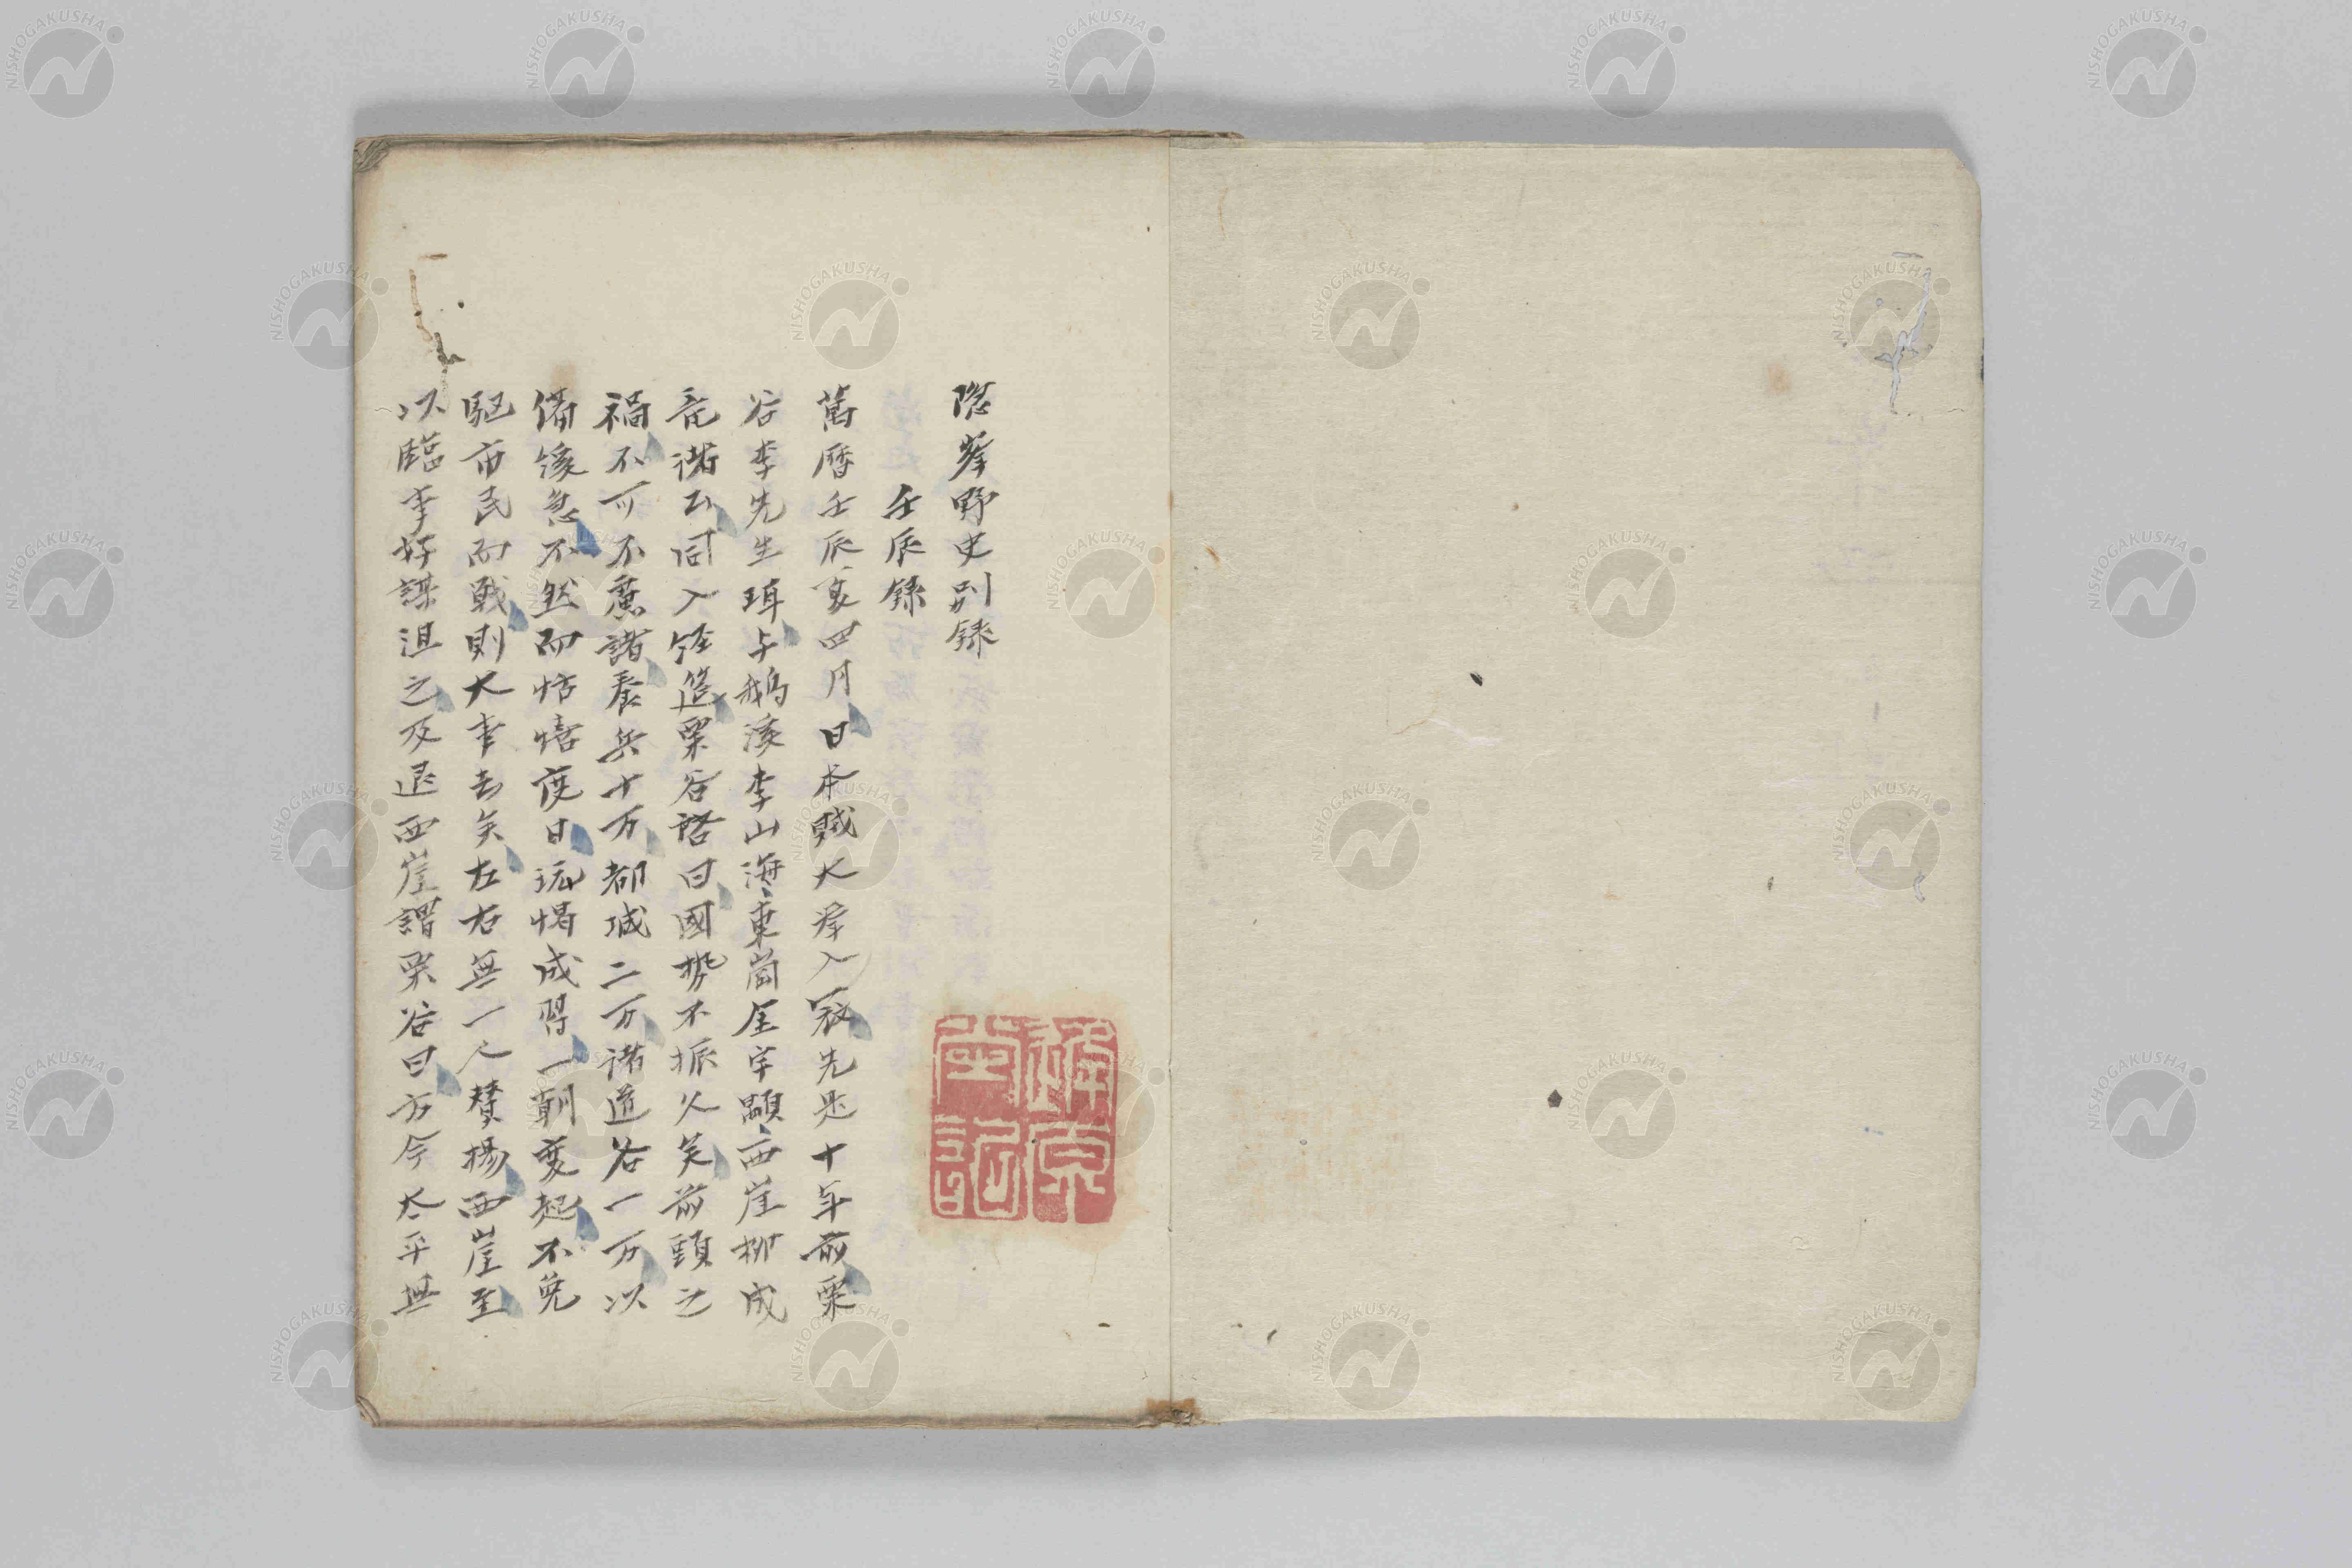 隐峯野史别録
壬辰録
萬曆壬辰夏四月日本賊大举入冦先是十年前栗
谷李先生珥与鵝溪李山海東崗金宇顒西崖柳成
竜諸公同入経筵栗谷啓曰國势不振久矣前頭之
禍不可不慮請養兵十万都城二万诸道各一万以
備緩急不然而恬憘度日玩愒成習一朝変起不免
驅市民而戰則大事去矣左右無一人賛揚西崖至
以臨事好謀沮之及退西崖謂栗谷曰方今太平無
NISHOGAKUSHA